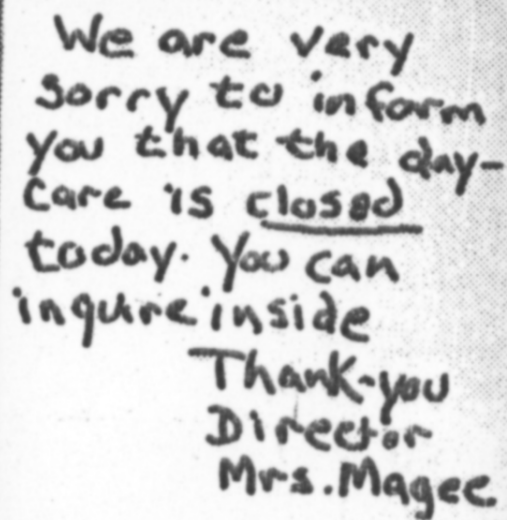 We are very
sorry to inform
you that the day-
care is closed
today. You can
inquire inside
Thank-you
Director
Mrs. Magee